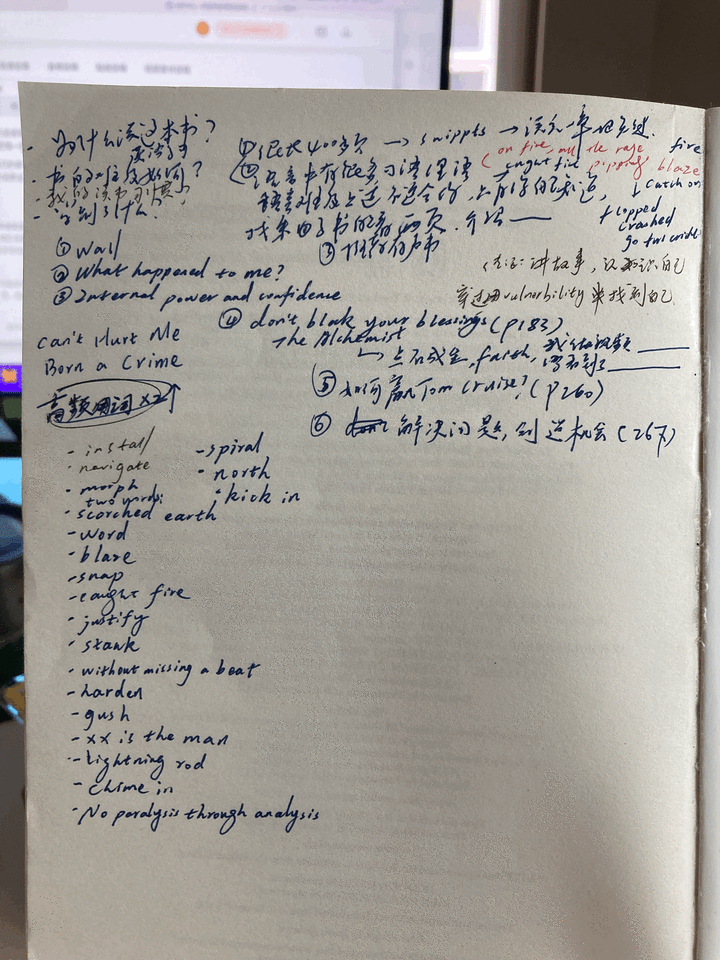 - 为什么读这本书?
读法分享
- 书的难度及如何?
- 我的读书习惯?
- 学到了什么?
① Wall
② What happened to me?
③ Internal power and confidence
Can't Hurt Me
Born a Crime
高频用词 x2↑
- install
- navigate
- morph
two words:
- scorched earth
- word
- blaze
- snap
- caught fire
- justify
- stank
- without missing a beat
- harden
- gush
- xx is the man
- Lightning rod
- Chime in
- No paralysis through analysis
- spiral
- north
- kick in
① 很长400多页 → snippts → 读完一章
② 语言中有很多习语俚语
(on fire, all the rage
caught fire popping
fire
blaze
↓ catch on
flopped
crashed
找来由了书的前两页. 介绍 ——
③ 推荐有声书
讲故事, 认知识自己
穿过用 vulnerbility 来找到自己
④ don't block your blessings (P183)
The Alchemist
↳ 点石成金, faith, 我做视频 ——
得到了 ——
⑤ 如何赢了Tom Cruise? (P260)
⑥ 解决问题, 创造机会 (267)